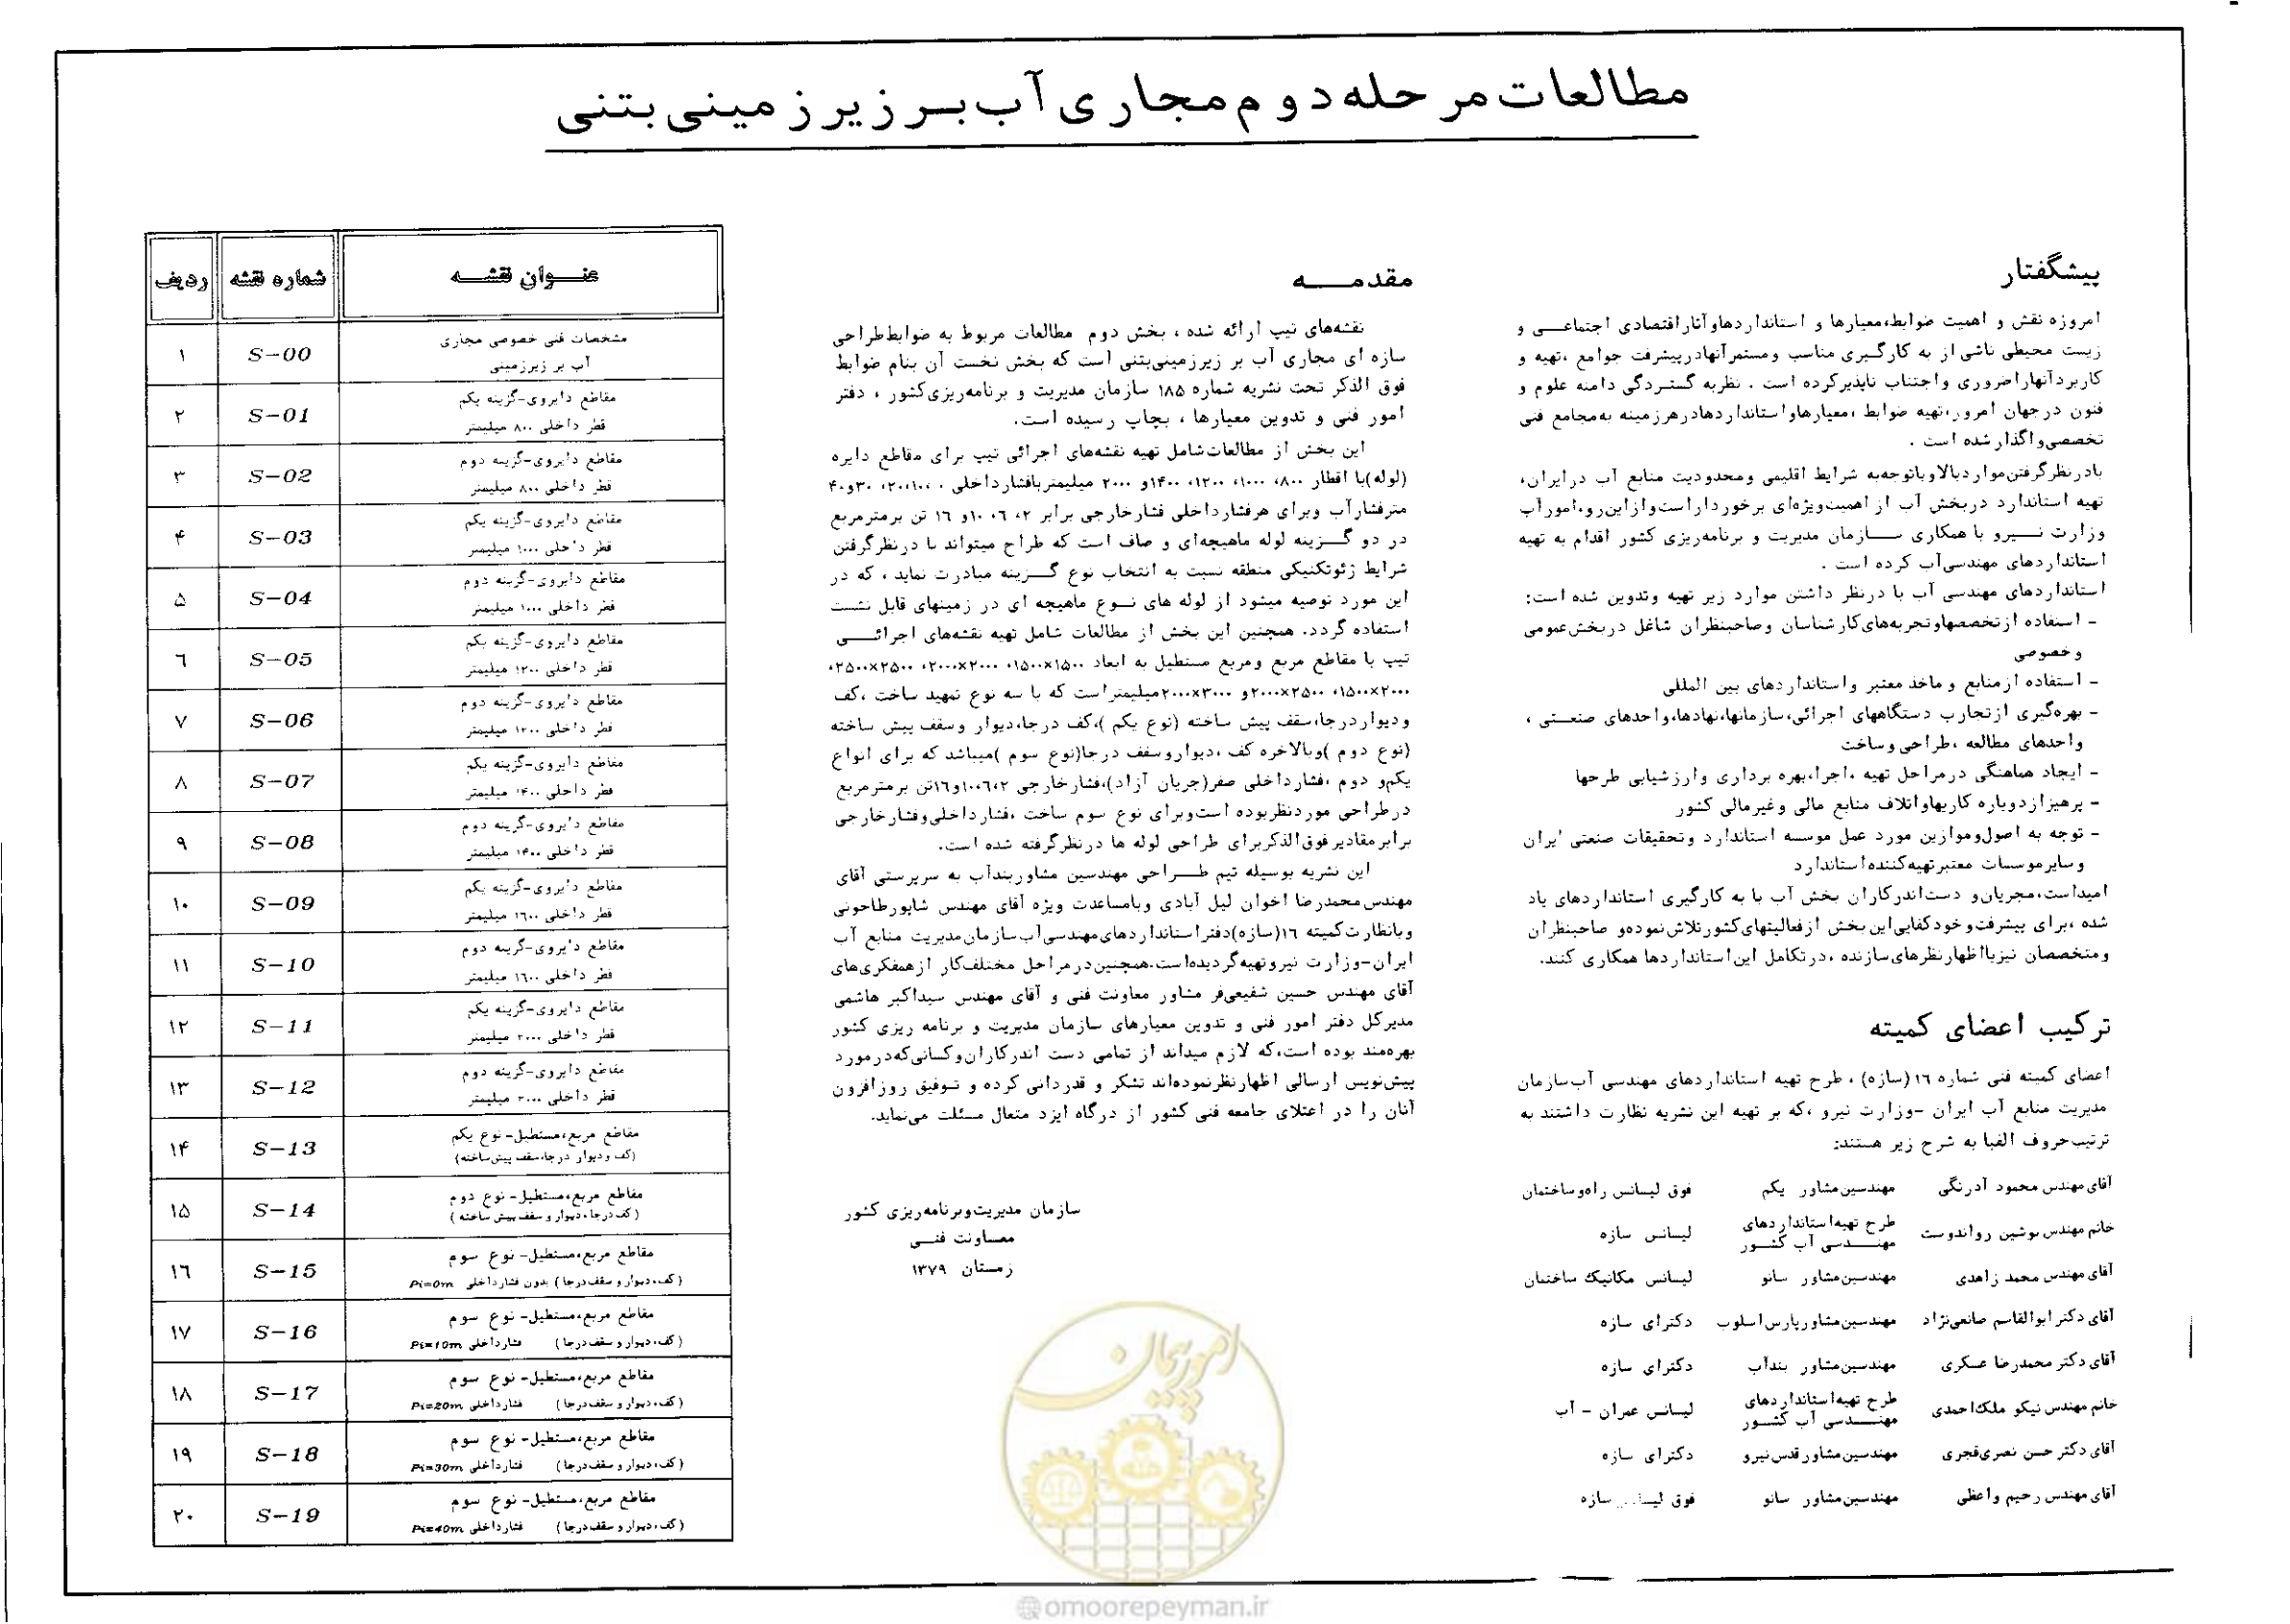 مطالعات مرحله دوم مجاری آب بر زیرزمینی بتنی
پیشگفتار
امروزه نقش و اهمیت ضوابط، معیارها و استانداردها و آثار اقتصادی اجتماعی و
زیست محیطی ناشی از به کارگیری مناسب و مستمر آنها در پیشرفت جوامع ، تهیه و
کاربرد آنها را ضروری و اجتناب ناپذیر کرده است . نظر به گستردگی دامنه علوم و
فنون در جهان امروز، تهیه ضوابط ، معیارها و استانداردها در هر زمینه به مجامع فنی
تخصصی واگذار شده است .
با در نظر گرفتن موارد بالا و با توجه به شرایط اقلیمی و محدودیت منابع آب در ایران،
تهیه استاندارد در بخش آب از اهمیت ویژه‌ای برخوردار است و از این رو، امور آب
وزارت نیرو با همکاری سازمان مدیریت و برنامه‌ریزی کشور اقدام به تهیه
استانداردهای مهندسی آب کرده است .
استانداردهای مهندسی آب با در نظر داشتن موارد زیر تهیه و تدوین شده است:
- استفاده از تخصصها و تجربه‌های کارشناسان و صاحبنظران شاغل در بخش عمومی
و خصوصی
- استفاده از منابع و ماخذ معتبر و استانداردهای بین المللی
- بهره‌گیری از تجارب دستگاههای اجرائی، سازمانها، نهادها، واحدهای صنعتی ،
واحدهای مطالعه ، طراحی و ساخت
- ایجاد هماهنگی در مراحل تهیه ، اجرا، بهره برداری و ارزشیابی طرحها
- پرهیز از دوباره کاریها و اتلاف منابع مالی و غیرمالی کشور
- توجه به اصول و موازین مورد عمل موسسه استاندارد و تحقیقات صنعتی ایران
و سایر موسسات معتبر تهیه کننده استاندارد
امید است، مجریان و دست‌اندرکاران بخش آب با به کارگیری استانداردهای یاد
شده ، برای پیشرفت و خودکفایی این بخش از فعالیتهای کشور تلاش نموده و صاحبنظران
و متخصصان نیز با اظهار نظرهای سازنده ، در تکامل این استانداردها همکاری کنند.
ترکیب اعضای کمیته
اعضای کمیته فنی شماره ۱۶ (سازه) ، طرح تهیه استانداردهای مهندسی آب سازمان
مدیریت منابع آب ایران - وزارت نیرو ، که بر تهیه این نشریه نظارت داشتند به
ترتیب حروف الفبا به شرح زیر هستند:
آقای مهندس محمود آدرنگی مهندسین مشاور یکم فوق لیسانس راه و ساختمان
خانم مهندس نوشین رواندوست طرح تهیه استانداردهای مهندسی آب کشور لیسانس سازه
آقای مهندس محمد زاهدی مهندسین مشاور سانو لیسانس مکانیک ساختمان
آقای دکتر ابوالقاسم صانعی‌نژاد مهندسین مشاور پارس اسلوب دکترای سازه
آقای دکتر محمدرضا عسکری مهندسین مشاور بندآب دکترای سازه
خانم مهندس نیکو ملک‌احمدی طرح تهیه استانداردهای مهندسی آب کشور لیسانس عمران - آب
آقای دکتر حسن نصری‌فجری مهندسین مشاور قدس نیرو دکترای سازه
آقای مهندس رحیم واعظی مهندسین مشاور سانو فوق سازه
مقدمه
نقشه‌های تیپ ارائه شده ، بخش دوم مطالعات مربوط به ضوابط طراحی
سازه ای مجاری آب بر زیرزمینی بتنی است که بخش نخست آن بنام ضوابط
فوق الذکر تحت نشریه شماره ۱۸۵ سازمان مدیریت و برنامه‌ریزی کشور ، دفتر
امور فنی و تدوین معیارها ، بچاپ رسیده است.
این بخش از مطالعات شامل تهیه نقشه‌های اجرائی تیپ برای مقاطع دایره
(لوله) با اقطار ۸۰۰، ۱۰۰۰، ۱۲۰۰، ۱۴۰۰ و ۲۰۰۰ میلیمتر با فشار داخلی ۰، ۱۰، ۲۰، ۳۰ و ۴۰
متر فشار آب و برای هر فشار داخلی فشار خارجی برابر ۲، ۶، ۱۰ و ۱۶ تن بر متر مربع
در دو گزینه لوله ماهیچه‌ای و صاف است که طراح میتواند با در نظر گرفتن
شرایط ژئوتکنیکی منطقه نسبت به انتخاب نوع گزینه مبادرت نماید ، که در
این مورد توصیه میشود از لوله های نوع ماهیچه ای در زمینهای قابل نشست
استفاده گردد. همچنین این بخش از مطالعات شامل تهیه نقشه‌های اجرائی
تیپ با مقاطع مربع و مربع مستطیل به ابعاد ۱۵۰۰×۱۵۰۰، ۲۰۰۰×۲۰۰۰، ۲۵۰۰×۲۵۰۰،
۲۰۰۰×۱۵۰۰، ۲۵۰۰×۲۰۰۰ و ۳۰۰۰×۲۰۰۰ میلیمتر است که با سه نوع تمهید ساخت ، کف
و دیوار درجا، سقف پیش ساخته (نوع یکم )، کف درجا، دیوار و سقف پیش ساخته
(نوع دوم ) و بالاخره کف ، دیوار و سقف درجا (نوع سوم ) میباشد که برای انواع
یکم و دوم ، فشار داخلی صفر (جریان آزاد)، فشار خارجی ۲، ۶، ۱۰ و ۱۶ تن بر متر مربع
در طراحی مورد نظر بوده است و برای نوع سوم ساخت ، فشار داخلی و فشار خارجی
برابر مقادیر فوق الذکر برای طراحی لوله ها در نظر گرفته شده است.
این نشریه بوسیله تیم طراحی مهندسین مشاور بندآب به سرپرستی آقای
مهندس محمدرضا اخوان لیل آبادی و با مساعدت ویژه آقای مهندس شاپور طاحونی
و با نظارت کمیته ۱۶ (سازه) دفتر استانداردهای مهندسی آب سازمان مدیریت منابع آب
ایران - وزارت نیرو تهیه گردیده است. همچنین در مراحل مختلف کار از همفکری‌های
آقای مهندس حسین شفیعی‌فر مشاور معاونت فنی و آقای مهندس سیداکبر هاشمی
مدیرکل دفتر امور فنی و تدوین معیارهای سازمان مدیریت و برنامه ریزی کشور
بهره‌مند بوده است، که لازم میداند از تمامی دست اندرکاران و کسانی که در مورد
پیش‌نویس ارسالی اظهار نظر نموده‌اند تشکر و قدردانی کرده و توفیق روزافزون
آنان را در اعتلای جامعه فنی کشور از درگاه ایزد متعال مسئلت می‌نماید.
سازمان مدیریت و برنامه‌ریزی کشور
معاونت فنی
زمستان ۱۳۷۹
عنوان نقشه شماره نقشه ردیف
مشخصات فنی خصوصی مجاری
آب بر زیرزمینی S-00 ۱
مقاطع دایروی-گزینه یکم
قطر داخلی ۸۰۰ میلیمتر S-01 ۲
مقاطع دایروی-گزینه دوم
قطر داخلی ۸۰۰ میلیمتر S-02 ۳
مقاطع دایروی-گزینه یکم
قطر داخلی ۱۰۰۰ میلیمتر S-03 ۴
مقاطع دایروی-گزینه دوم
قطر داخلی ۱۰۰۰ میلیمتر S-04 ۵
مقاطع دایروی-گزینه یکم
قطر داخلی ۱۲۰۰ میلیمتر S-05 ۶
مقاطع دایروی-گزینه دوم
قطر داخلی ۱۲۰۰ میلیمتر S-06 ۷
مقاطع دایروی-گزینه یکم
قطر داخلی ۱۴۰۰ میلیمتر S-07 ۸
مقاطع دایروی-گزینه دوم
قطر داخلی ۱۴۰۰ میلیمتر S-08 ۹
مقاطع دایروی-گزینه یکم
قطر داخلی ۱۶۰۰ میلیمتر S-09 ۱۰
مقاطع دایروی-گزینه دوم
قطر داخلی ۱۶۰۰ میلیمتر S-10 ۱۱
مقاطع دایروی-گزینه یکم
قطر داخلی ۲۰۰۰ میلیمتر S-11 ۱۲
مقاطع دایروی-گزینه دوم
قطر داخلی ۲۰۰۰ میلیمتر S-12 ۱۳
مقاطع مربع، مستطیل- نوع یکم
(کف و دیوار درجا، سقف پیش ساخته) S-13 ۱۴
مقاطع مربع، مستطیل- نوع دوم
(کف درجا، دیوار و سقف پیش ساخته ) S-14 ۱۵
مقاطع مربع، مستطیل- نوع سوم
(کف، دیوار و سقف درجا ) بدون فشار داخلی Pi=0m S-15 ۱۶
مقاطع مربع، مستطیل- نوع سوم
(کف، دیوار و سقف درجا ) فشار داخلی Pi=10m S-16 ۱۷
مقاطع مربع، مستطیل- نوع سوم
(کف، دیوار و سقف درجا ) فشار داخلی Pi=20m S-17 ۱۸
مقاطع مربع، مستطیل- نوع سوم
(کف، دیوار و سقف درجا ) فشار داخلی Pi=30m S-18 ۱۹
مقاطع مربع، مستطیل- نوع سوم
(کف، دیوار و سقف درجا ) فشار داخلی Pi=40m S-19 ۲۰
امور پیمان
omoorepeyman.ir